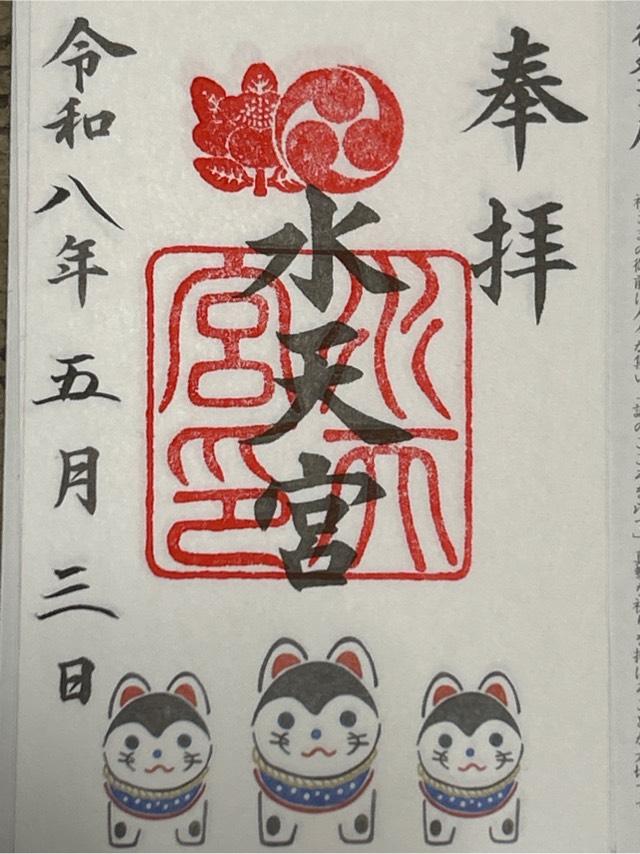 奉拝
水天宮
水天宮印
令和八年五月三日